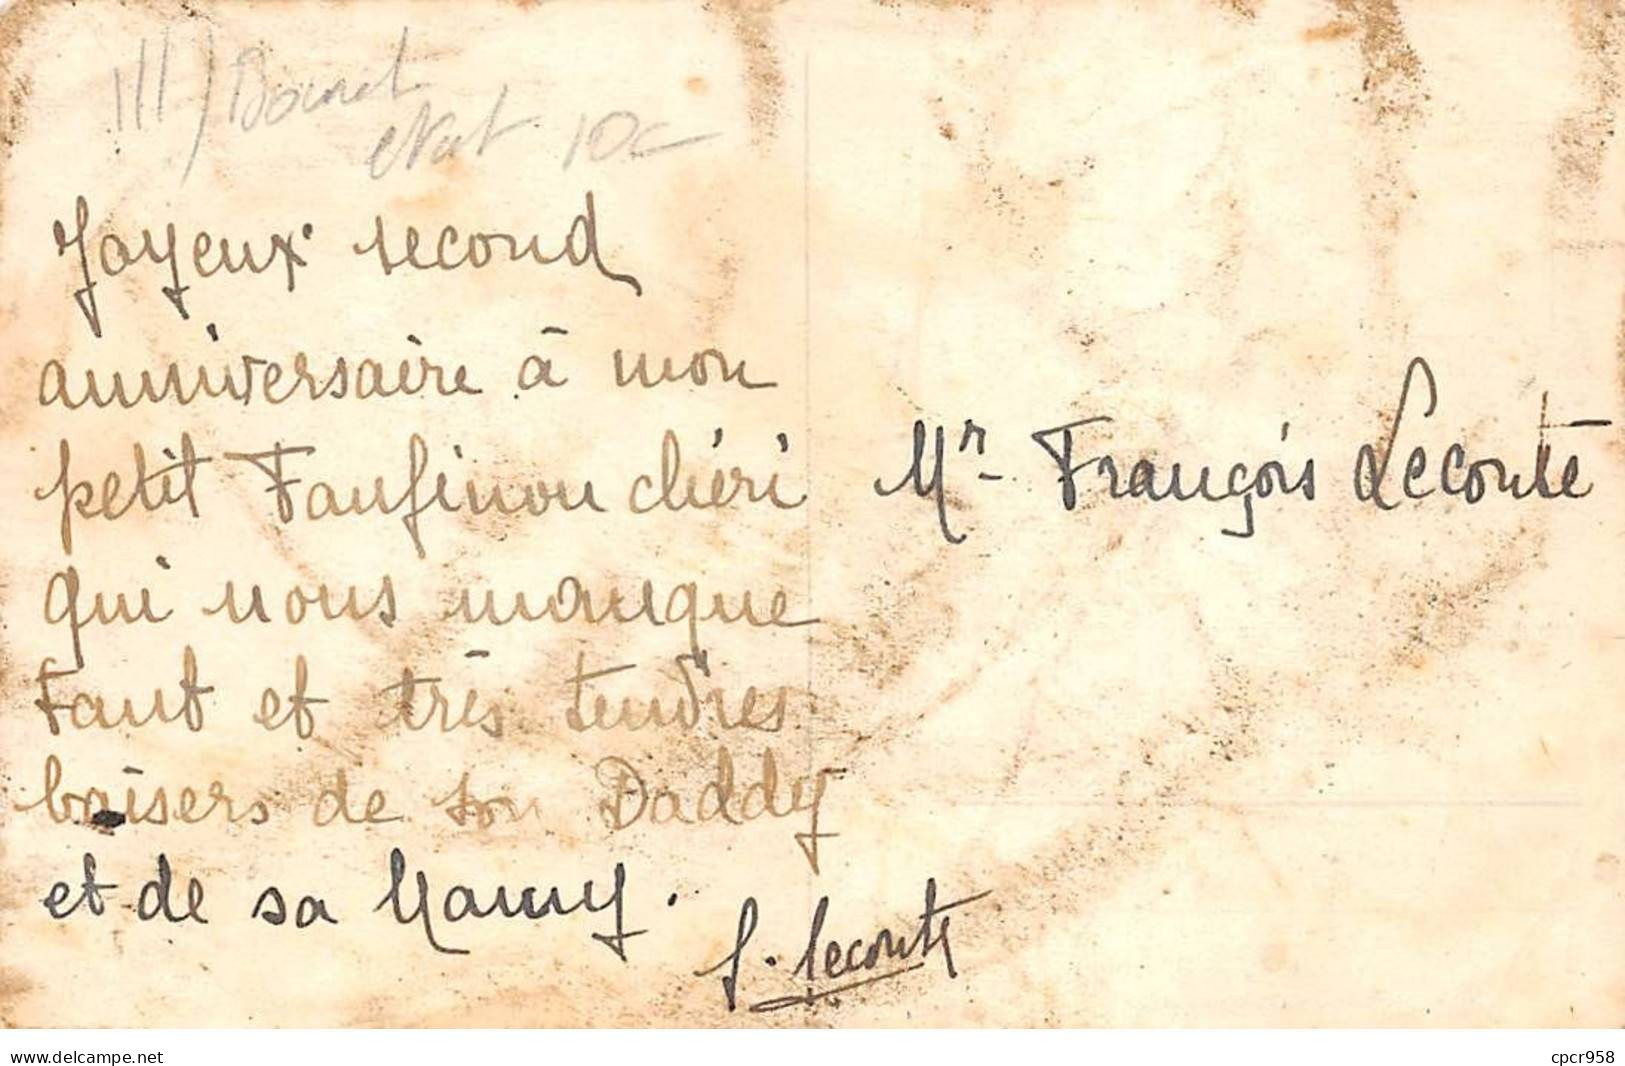 III)
etat 10
Joyeux second
anniversaire à mon
petit Fanfinou chéri
qui nous manque
tant et très tendres
baisers de son Daddy
et de sa Mamy.
Mr François Leconte
Leconte
www.delcampe.net
cpcr958